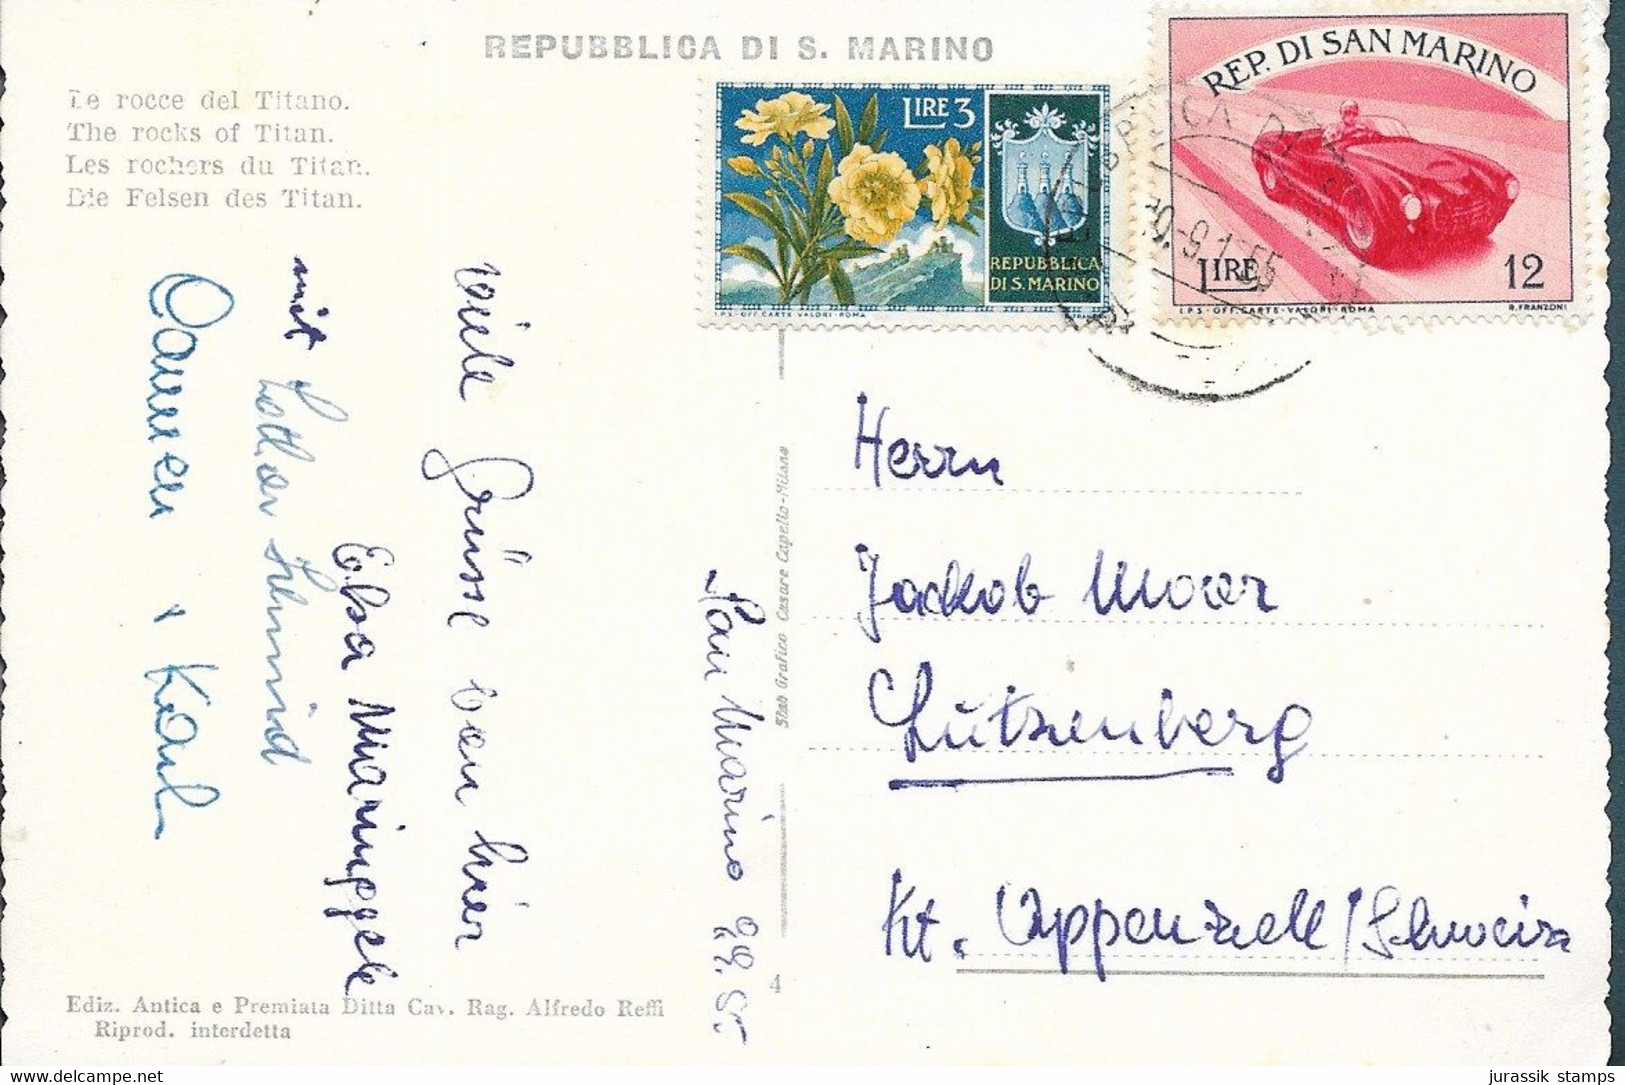 REPUBBLICA DI S. MARINO
Le rocce del Titano.
The rocks of Titan.
Les rochers du Titan.
Die Felsen des Titan.
LIRE 3
REPUBBLICA
DI S. MARINO
I.P.S. - OFF. CARTE-VALORI - ROMA
REP. DI SAN MARINO
LIRE
12
I.P.S. - OFF. CARTE-VALORI - ROMA
R. FRANZONI
San Marino 9.9.55
viele Grüsse von hier
Elsa
mit Lothar Schmid
+ Karl
Stab Grafico Cesare Capello-Milano
4
Herrn
Jackob
Lutzenberg
Kt. Appenzell/Schweiz
Ediz. Antica e Premiata Ditta Cav. Rag. Alfredo Reffi
Riprod. interdetta
jurassik stamps